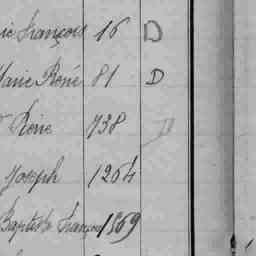 ie François 16 D
Marie René 81 D
René 738 D
Joseph 1264
Baptiste François 1869